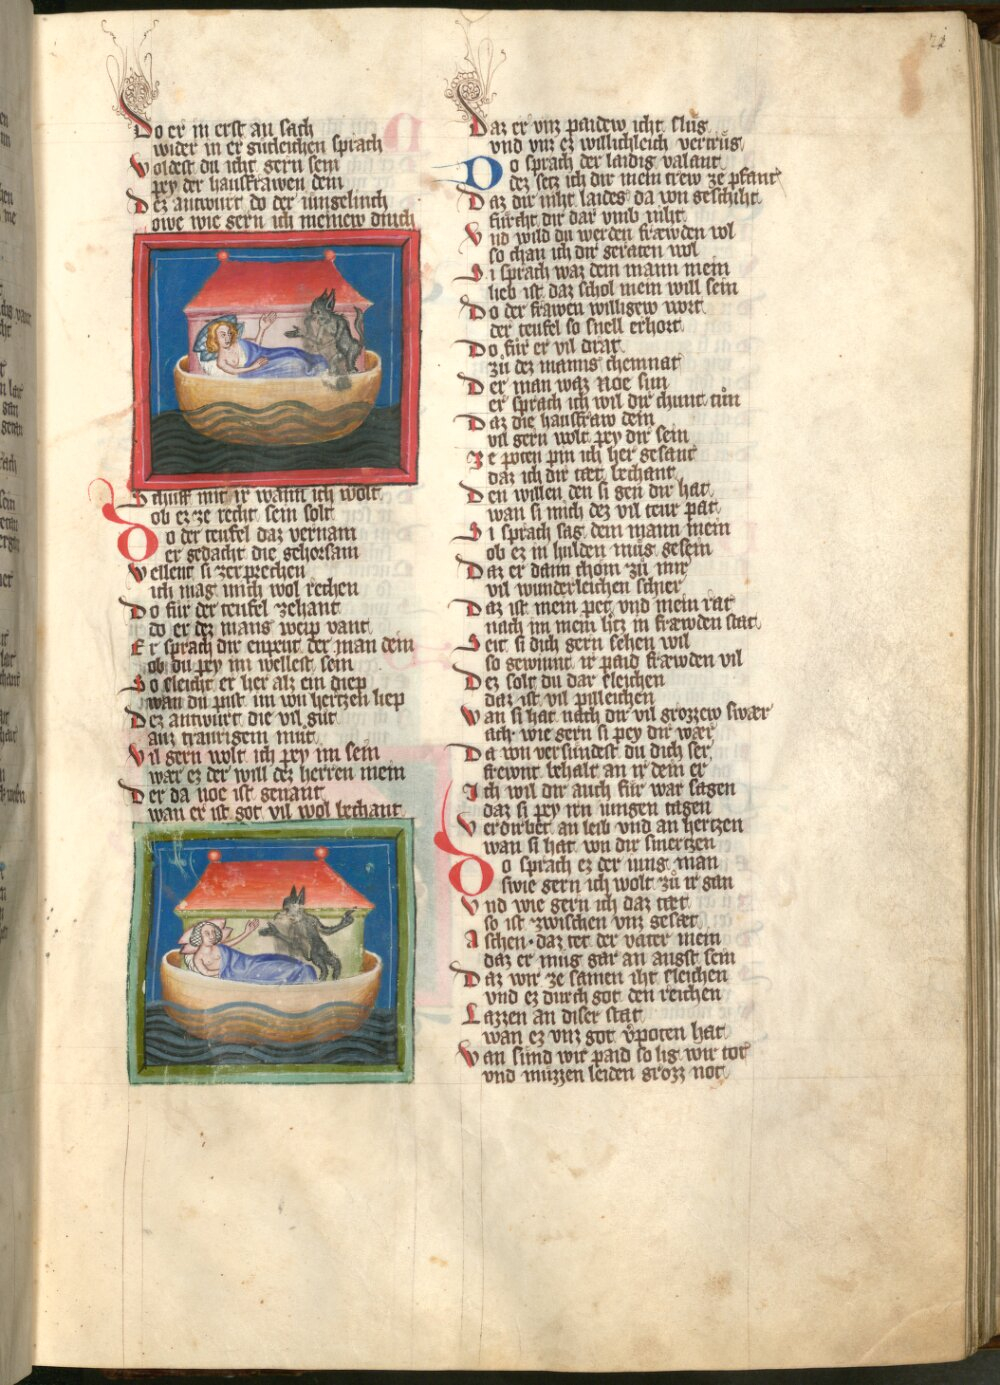 Do er in erst an sach
wider in er gütleichen sprach
Woldest du icht gern sein
pey der hausfrawen dein
Dez antwurt do der iungelinch
owe wie gern ich meinew dinch
Schüff mit ir wann ich wolt
ob ez ze recht sein solt
Do der teufel daz vernam
er gedacht die gehorsam
Wellent si zerprechen
ich mag mich wol rechen
Do für der teufel zehant
do er dez mans weip vant
Er sprach dir enpeut der man dein
ob du pey im wellest sein
So sleicht er her alz ein diep
wan du pist im von hertzen liep
Dez antwurt die vil güt
auz traurigem müt
Vil gern wolt ich pey im sein
wær ez der will dez herren mein
Der da noe ist genant
wan er ist got vil wol bechant
Daz er vnz paidew icht slüg
vnd vnz ez willichleich vertrüg
Do sprach der laidig valant
dez setz ich dir mein trew ze pfant
Daz dir niht laides da von geschiht
fürcht dir dar vmb niht
Vnd wild du werden fræwden vol
so chan ich dir geraten wol
Si sprach waz dem mann mein
lieb ist daz schol mein will sein
Do der frawen willigew wort
der teufel so snell erhort
Do für er vil drat
zü dez manns chemnat
Der man waz Noe sun
er sprach ich wil dir chunt tün
Daz die hausfraw dein
vil gern wolt pey dir sein
Ze poten pin ich her gesant
daz ich dir tæt bechant
Den willen den si gen dir hat
wan si mich dez vil teur pat
Si sprach sag dem mann mein
ob ez in hulden müg gesein
Daz er dann chom zü mir
vil wunderleichen schier
Daz ist mein pet vnd mein rat
nach im mein hitz in fræwden stat
Seit si dich gern sehen wil
so gewinnt ir paid fræwden vil
Dez solt du dar sleichen
daz ist vil pilleichen
Wan si hat nach dir vil grozzew swær
ach wie gern si pey dir wær
Da von versündest du dich ser
frewnt behalt an ir dein er
Ich wil dir auch für war sagen
daz si pey irn iungen tagen
Verdirbet an leib vnd an hertzen
wan si hat von dir smertzen
Do sprach ez der iung man
swie gern ich wolt zü ir gan
Vnd wie gern ich daz tæt
so ist zwischen vnz gesæt
Aschen daz tet der vater mein
daz er müg gar an angst sein
Daz wir ze samen iht sleichen
vnd ez durch got den reichen
Lazzen an diser stat
wan ez vnz got v̈poten hat
Wan sünd wir paid so lig wir tot
vnd müzzen leiden grozz not